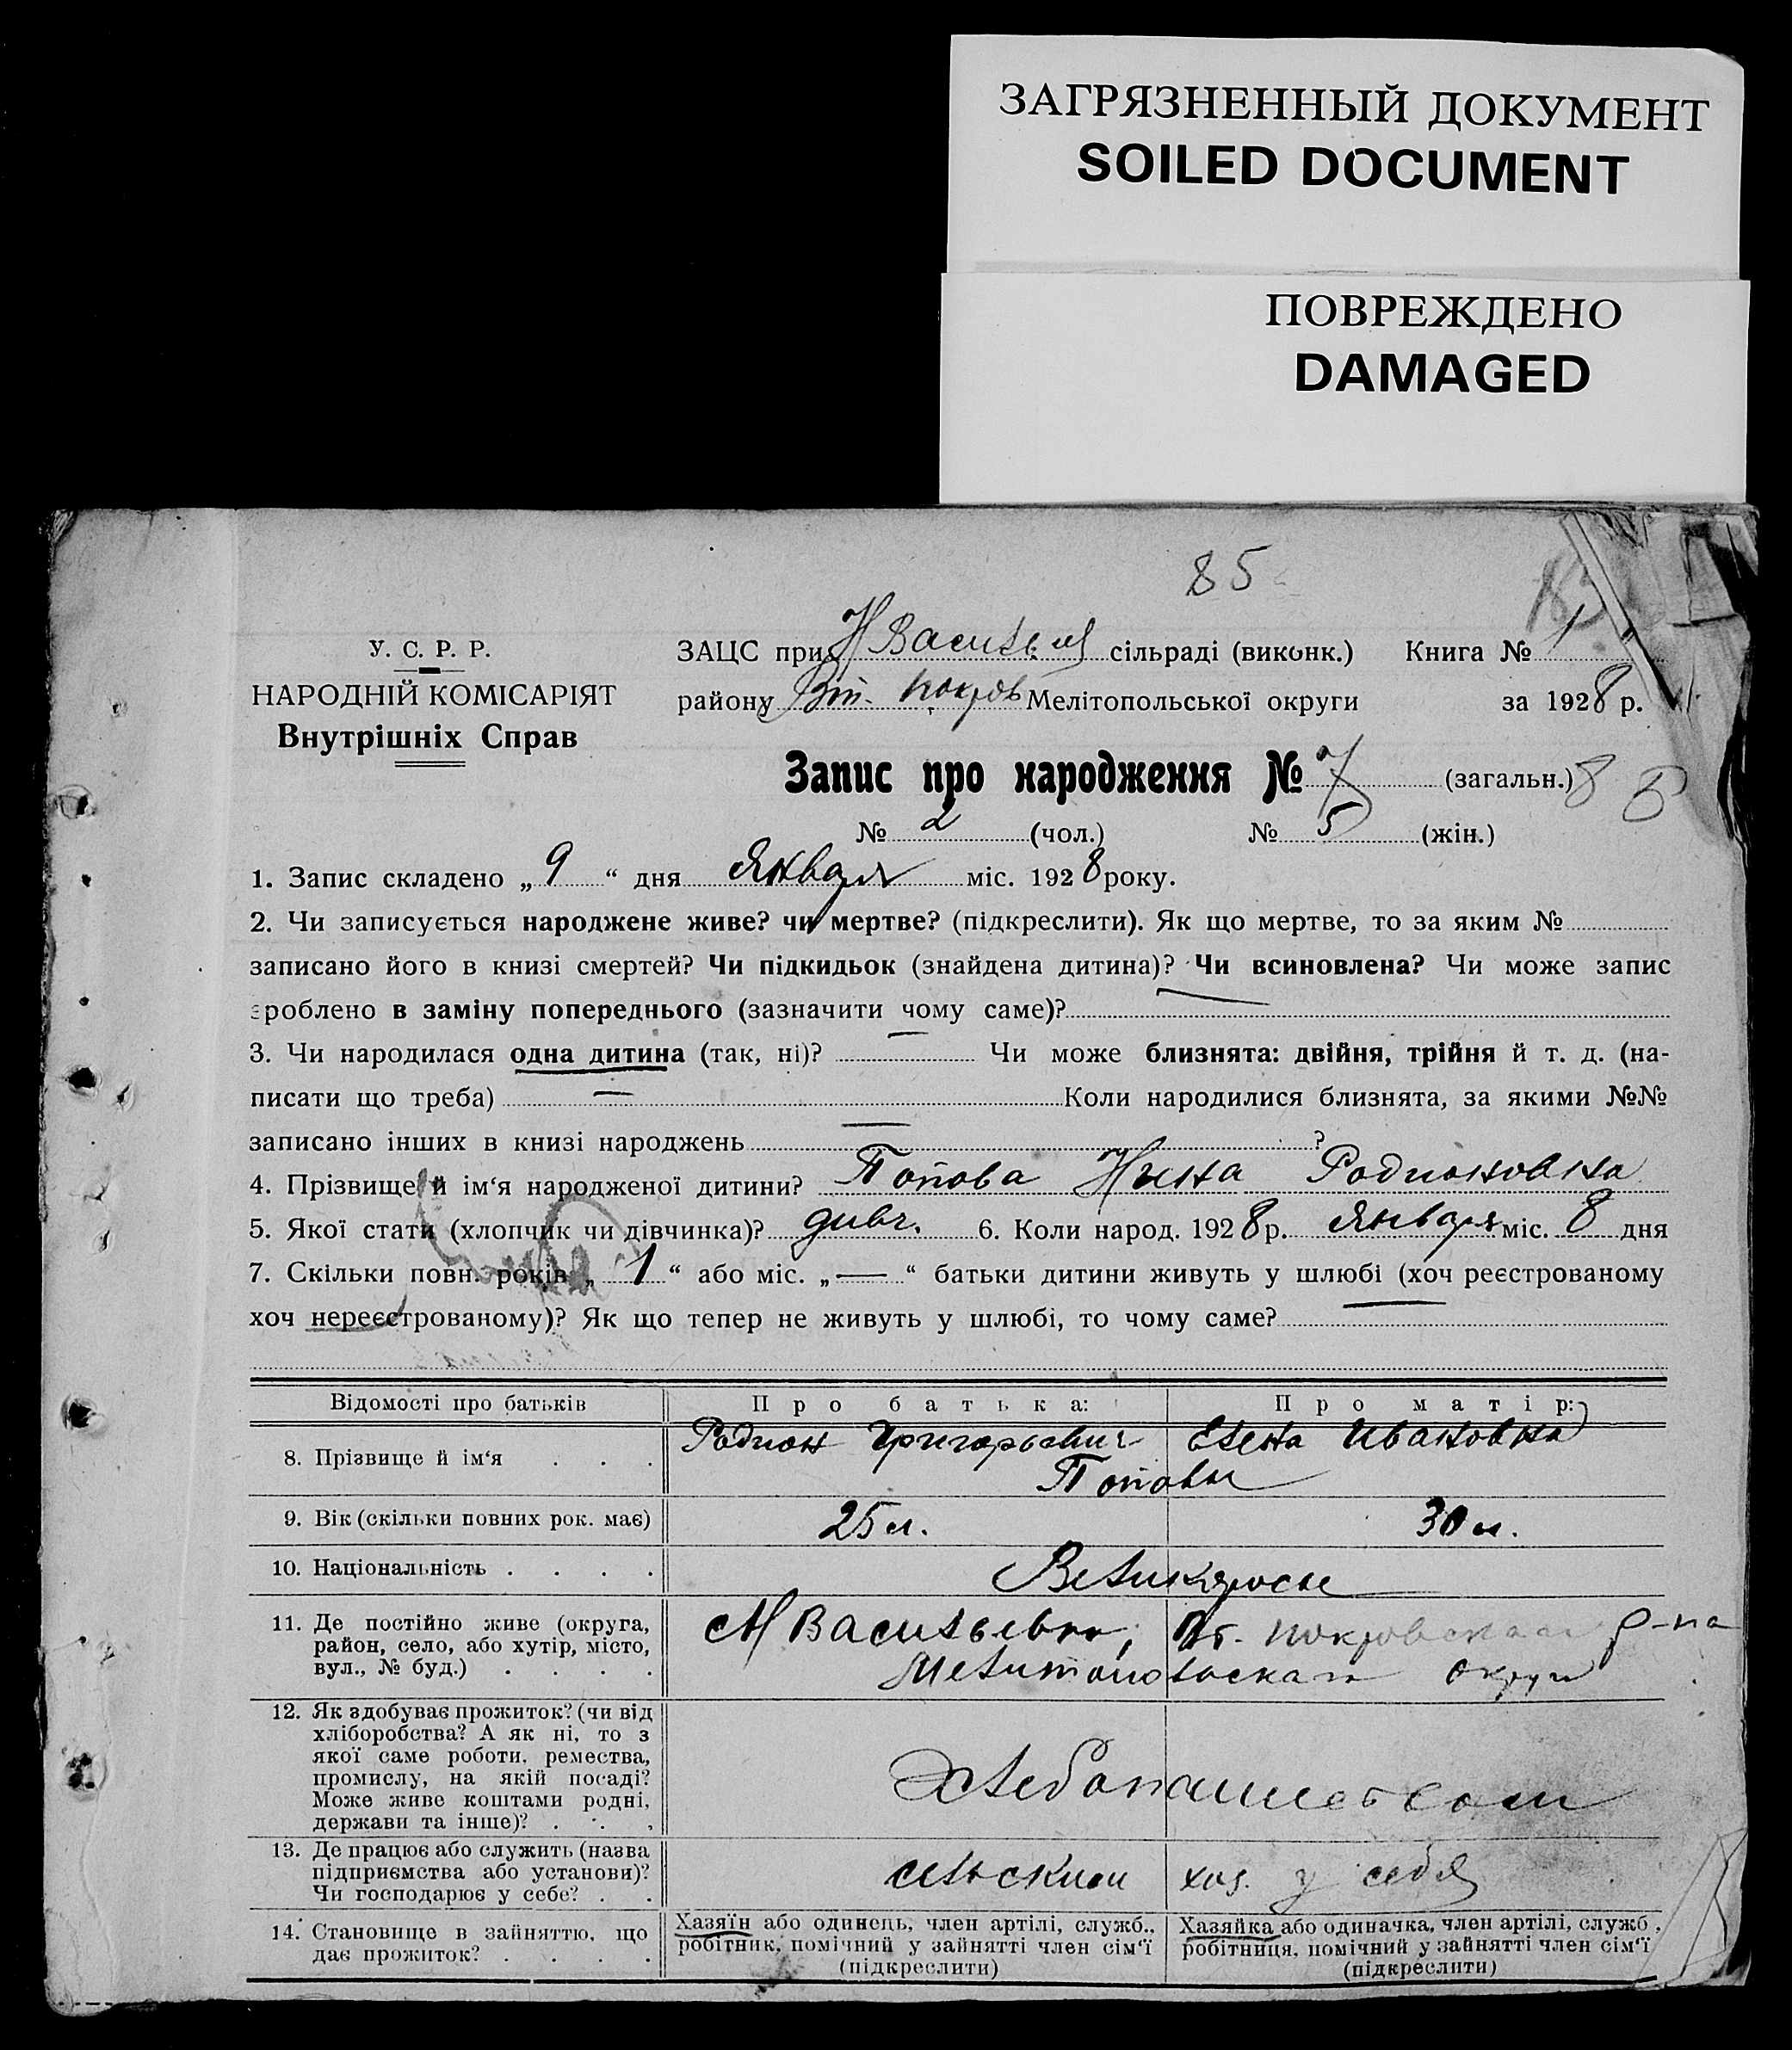 ЗАГРЯЗНЕННЫЙ ДОКУМЕНТ
SOILED DOCUMENT
ПОВРЕЖДЕНО
DAMAGED
85
У. С. Р. Р.
НАРОДНІЙ КОМІСАРІЯТ
Внутрішніх Справ
ЗАЦС при Н Васильев сільраді (виконк.) Книга № 1
району Вт. Покров Мелітопольської округи за 1928 р.
Запис про народження № 7 (загальн.) 8
№ 2 (чол.) № 5 (жін.)
1. Запис складено „ 9 “ дня Января міс. 1928 року.
2. Чи записується народжене живе? чи мертве? (підкреслити). Як що мертве, то за яким №
записано його в книзі смертей? Чи підкидьок (знайдена дитина)? Чи всиновлена? Чи може запис
зроблено в заміну попереднього (зазначити чому саме)?
3. Чи народилася одна дитина (так, ні)? — Чи може близнята: двійня, трійня й т. д. (на-
писати що треба) — Коли народилися близнята, за якими №№
записано інших в книзі народжень — ?
4. Прізвище й ім‘я народженої дитини? Попова Нина Родионовна
5. Якої стати (хлопчик чи дівчинка)? дивч. 6. Коли народ. 1928 р. Января міс. 8 дня
7. Скільки повн. років „ 1 “ або міс. „ — “ батьки дитини живуть у шлюбі (хоч реєстрованому
хоч нереєстрованому)? Як що тепер не живуть у шлюбі, то чому саме? —
Відомості про батьків Про батька: Про матір:
8. Прізвище й ім‘я . . . Родион Григорьевич Елена Ивановна
Поповы
9. Вік (скільки повних рок. має) 25 л. 30 л.
10. Національність . . . . Великороссы
11. Де постійно живе (округа,
район, село, або хутір, місто,
вул., № буд.) . . . .
Н Васильевка, Вт. Покровская р-на
Мелитопольская округи
12. Як здобуває прожиток? (чи від
хліборобства? А як ні, то з
якої саме роботи, ремества,
промислу, на якій посаді?
Може живе коштами родні,
держави та інше)? . . .
Хлебопашеством
13. Де працює або служить (назва
підприємства або установи)?
Чи господарює у себе? . .
сельским хоз. у себя
14. Становище в зайняттю, що
дає прожиток? . . . .
Хазяїн або одинець, член артілі, служб.,
робітник, помічний у зайнятті член сім‘ї
(підкреслити)
Хазяйка або одиначка, член артілі, служб.,
робітниця, помічний у зайнятті член сім‘ї
(підкреслити)